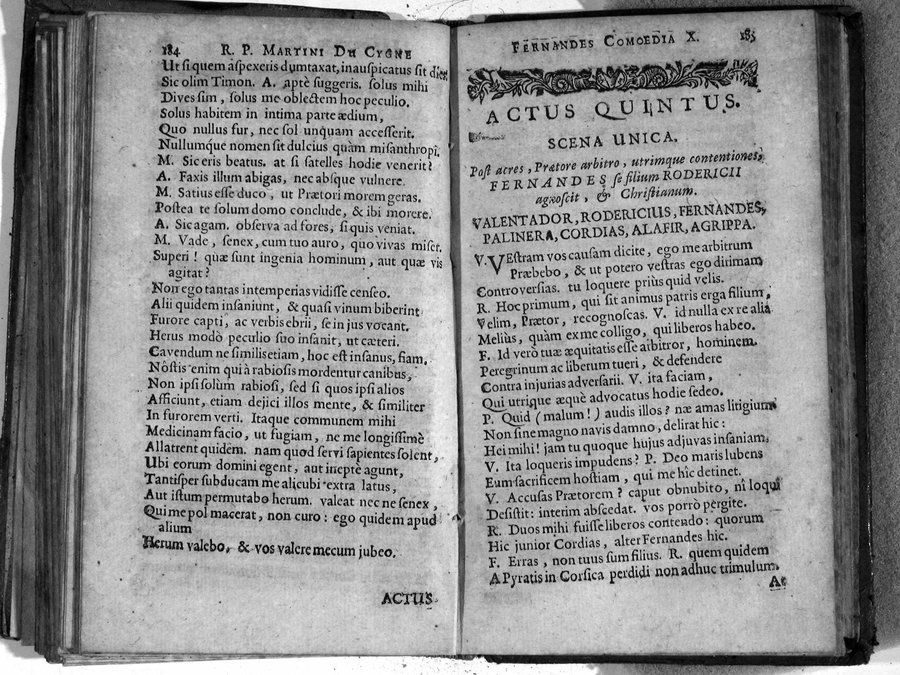 184 R. P. MARTINI DU CYGNE
Ut si quem aspexeris dumtaxat, inauspicatus sit dies.
Sic olim Timon. A. aptè suggeris. solus mihi
Dives sim, solus me oblectem hoc peculio.
Solus habitem in intima parte ædium,
Quo nullus fur, nec sol unquam accesserit.
Nullumque nomen sit dulcius quàm misanthropi.
M. Sic eris beatus. at si satelles hodie venerit?
A. Faxis illum abigas, nec absque vulnere.
M. Satius esse duco, ut Prætori morem geras.
Postea te solum domo conclude, & ibi morere.
A. Sic agam. observa ad fores, si quis veniat.
M. Vade, senex, cum tuo auro, quo vivas miser.
Superi! quæ sunt ingenia hominum, aut quæ vis
agitat?
Non ego tantas intemperias vidisse censeo.
Alii quidem insaniunt, & quasi vinum biberint
Furore capti, ac verbis ebrii, se in jus vocant.
Herus modò peculio suo insanit, ut cæteri.
Cavendum ne similis etiam, hoc est insanus, fiam.
Nostis enim qui à rabiosis mordentur canibus,
Non ipsi solùm rabiosi, sed si quos ipsi alios
Afficiunt, etiam dejici illos mente, & similiter
In furorem verti. Itaque communem mihi
Medicinam facio, ut fugiam, ne me longissimè
Allatrent quidem. nam quod servi sapientes solent,
Ubi eorum domini egent, aut ineptè agunt,
Tantisper subducam me alicubi extra latus,
Aut istum permutabo herum. valeat nec ne senex,
Qui me pol macerat, non curo: ego quidem apud
alium
Herum valebo, & vos valere mecum jubeo.
ACTUS
FERNANDES COMOEDIA X. 185
ACTUS QUINTUS.
SCENA UNICA.
Post acres, Prætore arbitro, utrimque contentiones,
FERNANDES se filium RODERICII
agnoscit, & Christianum.
VALENTADOR, RODERICIUS, FERNANDES,
PALINERA, CORDIAS, ALAFIR, AGRIPPA.
V. VEstram vos causam dicite, ego me arbitrum
Præbebo, & ut potero vestras ego dirimam
Controversias. tu loquere priùs quid velis.
R. Hoc primum, qui sit animus patris erga filium,
Velim, Prætor, recognoscas. V. id nulla ex re alia
Meliùs, quàm ex me colligo, qui liberos habeo.
F. Id verò tuæ æquitatis esse aibitror, hominem
Peregrinum ac liberum tueri, & defendere
Contra injurias adversarii. V. ita faciam,
Qui utrique æquè advocatus hodie sedeo.
P. Quid (malum!) audis illos? næ amas litigium
Non sine magno navis damno, delirat hic:
Hei mihi! jam tu quoque hujus adjuvas insaniam,
V. Ita loqueris impudens? P. Deo maris lubens
Eum sacrificem hostiam, qui me hic detinet.
V. Accusas Prætorem? caput obnubito, ni loqui
Desistit: interim abscedat. vos porrò pergite.
R. Duos mihi fuisse liberos contendo: quorum
Hic junior Cordias, alter Fernandes hic.
F. Erras, non tuus sum filius. R. quem quidem
A Pyratis in Corsica perdidi non adhuc trimulum.
At